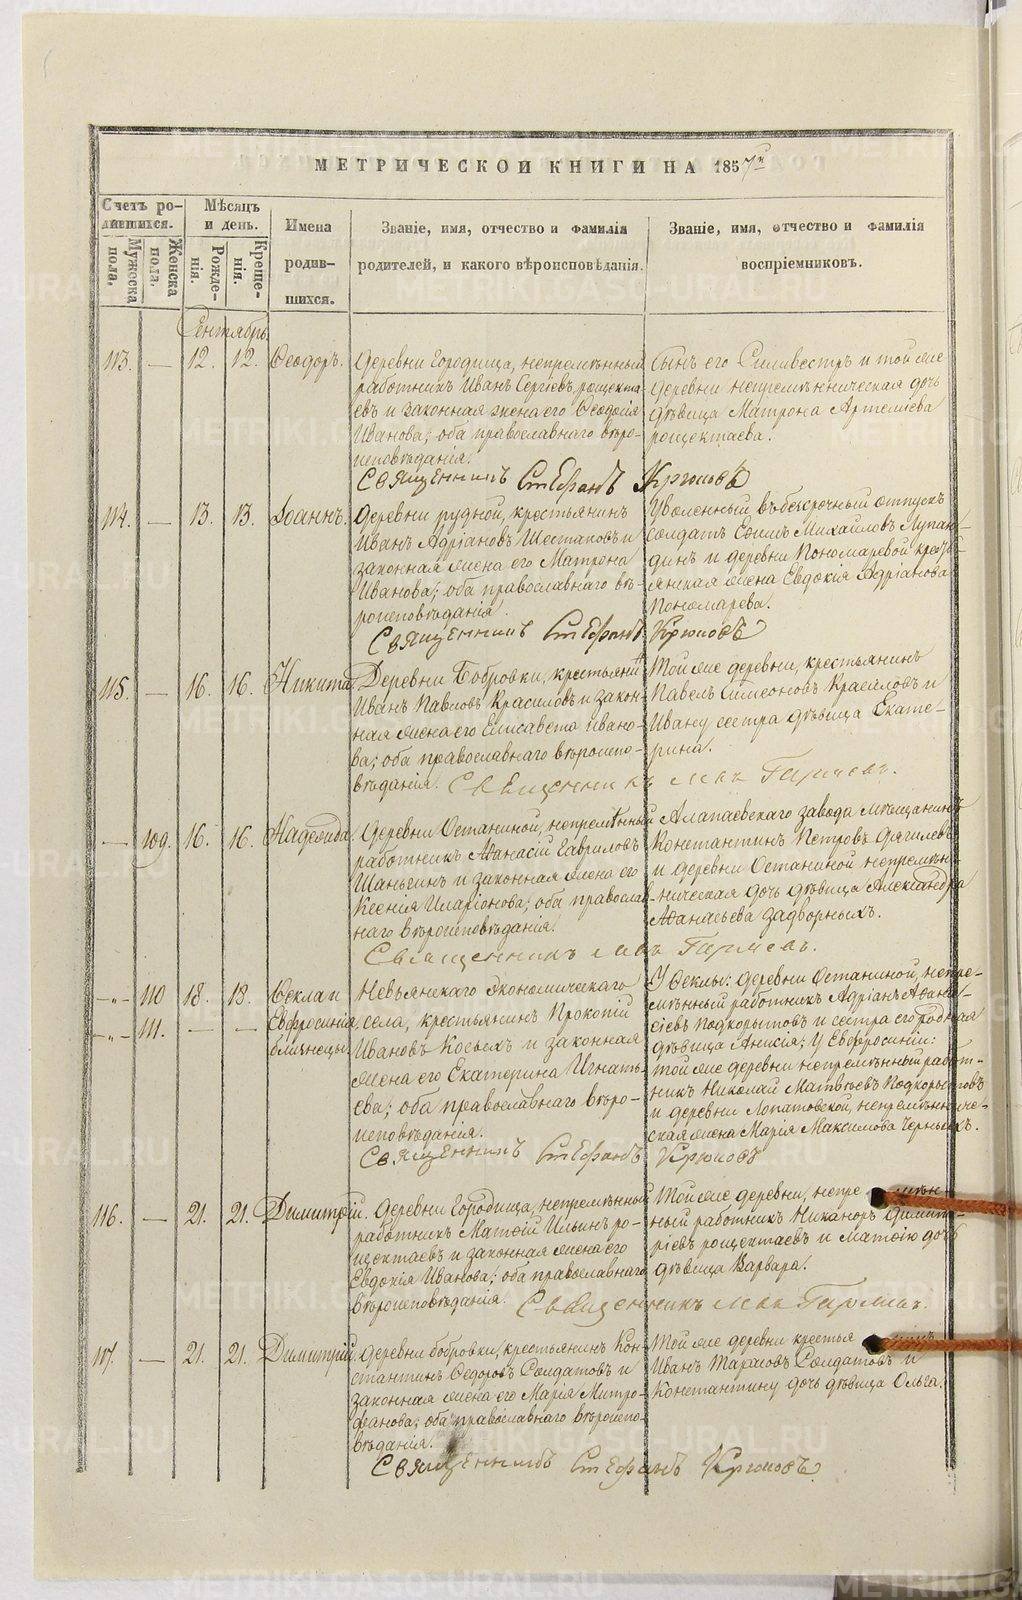 МЕТРИЧЕСКОЙ КНИГИ НА 1857й
Счетъ ро-
дившихся.
Мужеска пола.
Женска пола.
Мѣсяцъ
и день.
Рожде-
нія.
Креще-
нія.
Имена
родив-
шихся.
Званіе, имя, отчество и фамилія
родителей, и какого вѣроисповѣданія.
Званіе, имя, отчество и фамилія
воспріемниковъ.
Сентябрь.
113. — 12. 12. Ѳеодоръ.
Деревни Городища, непремѣнный
работникъ Иванъ Сергіевъ рощекта-
евъ и законная жена его Ѳеодосія
Иванова; оба православнаго вѣро-
исповѣданія.
Сынъ его Силивестръ и той же
деревни непремѣнническая дочь
дѣвица Матрона Артеміева
рощектаева.
Священникъ Стефанъ Крюковъ
114. — 13. 13. Іоаннъ.
Деревни рудной, крестьянинъ
Иванъ Адріановъ Шестаковъ и
законная жена его Матрона
Иванова; оба православнаго вѣ-
роисповѣданія.
Уволенный въ безсрочный отпускъ
солдатъ Евѳимъ Михайловъ Лупан-
динъ и деревни Пономаревой крестъ-
янская жена Евдокія Адріанова
Пономарева.
Священникъ Стефанъ Крюковъ
115. — 16. 16. Никита
Деревни Бобровки, крестьянинъ
Иванъ Павловъ Красиловъ и закон-
ная жена его Елисавета Ивано-
ва; оба православнаго вѣроиспо-
вѣданія.
Той же деревни, крестьянинъ
Павелъ Симеоновъ Красиловъ и
Ивану сестра дѣвица Екате-
рина.
Священникъ
— 109. 16. 16. Надежда.
Деревни Останиной, непремѣнный
работникъ Аѳанасій Гавриловъ
Шаньгинъ и законная жена его
Ксенія Иларіонова; оба православ-
наго вѣроисповѣданія.
Алапаевскаго завода мѣщанинъ
Константинъ Петровъ
и деревни Останиной непремѣн-
ническая дочь дѣвица Александра
Аѳанасьева Задворныхъ.
Священникъ
—„— 110 18. 18. Ѳекла и
—„— 111. — — Евфросинія,
близнецы.
Невьянскаго Экономическаго
села, крестьянинъ Прокопій
Ивановъ Косыхъ и законная
жена его Екатерина Игнать-
ева; оба православнаго вѣро-
исповѣданія.
У Ѳеклы: деревни Останиной, непре-
мѣнный работникъ Адріанъ Аѳана-
сіевъ Подкорытовъ и сестра его родная
дѣвица Анисія; У Евфросиніи:
той же деревни непремѣнный работ-
никъ Николай Матвѣевъ Подкорытовъ
и деревни Лопатовской, непремѣнниче-
ская жена Марія Максимова Черныхъ.
Священникъ Стефанъ Крюковъ
116. — 21. 21. Димитрій.
Деревни Городища, непремѣнный
работникъ Матѳій Ильинъ ро-
щектаевъ и законная жена его
Евдокія Иванова; оба православнаго
вѣроисповѣданія.
Той же деревни, непремѣн-
ный работникъ Никаноръ Димит-
ріевъ рощектаевъ и Матѳію дочь
дѣвица Варвара.
Священникъ
117. — 21. 21. Димитрій.
Деревни бобровки, крестьянинъ Кон-
стантинъ Ѳедоровъ Солдатовъ и
законная жена его Марія Митро-
фанова; оба православнаго вѣроиспо-
вѣданія.
Той же деревни крестья
Иванъ Тарасовъ Солдатовъ и
Константину дочь дѣвица Ольга.
Священникъ Стефанъ Крюковъ
METRIKI.GASO-URAL.RU